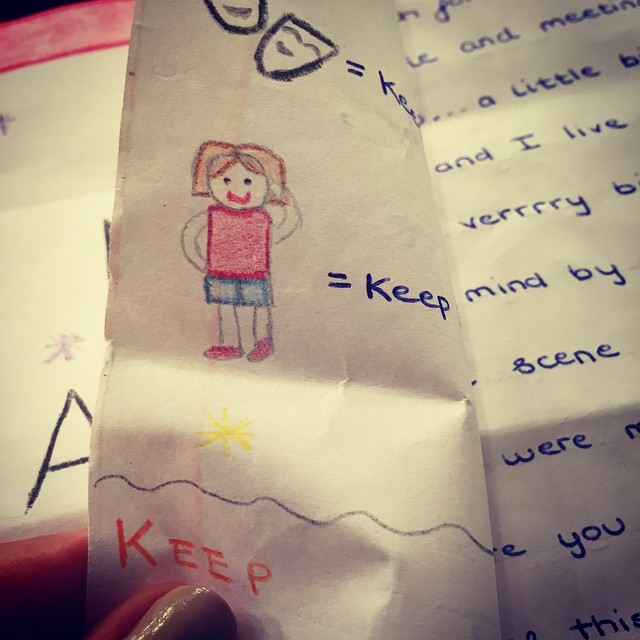 = Kee
= Keep
KEEP
A
and meeting
.... a little bi
and I live
verrrry bi
mind by
scene
were m
e you
this